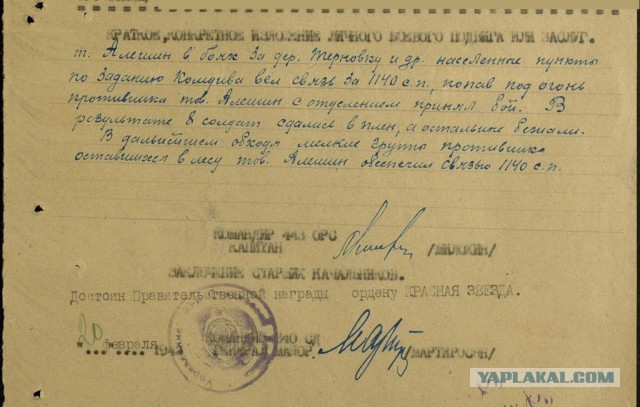 КРАТКОЕ, КОНКРЕТНОЕ ИЗЛОЖЕНИЕ ЛИЧНОГО БОЕВОГО ПОДВИГА ИЛИ ЗАСЛУГ.
т. Алешин в боях за дер. Терновку и др. населенные пункты
по заданию Комдива вел связь за 1140 с.п., попав под огонь
противника тов. Алешин с отделением принял бой. В
результате 8 солдат сдались в плен, а остальные бежали.
В дальнейшем обходя мелкие группы противника
оставшиеся в лесу тов. Алешин обеспечил связью 1140 с.п.
КОМАНДИР 443 ОРС
КАПИТАН /МИЛОХИН/
ЗАКЛЮЧЕНИЕ СТАРШИХ НАЧАЛЬНИКОВ.
Достоин Правительственной награды ордену КРАСНАЯ ЗВЕЗДА.
20 февраля
ГЕНЕРАЛ МАЙОР /МАРТИРОСЯН/
YAPLAKAL.COM